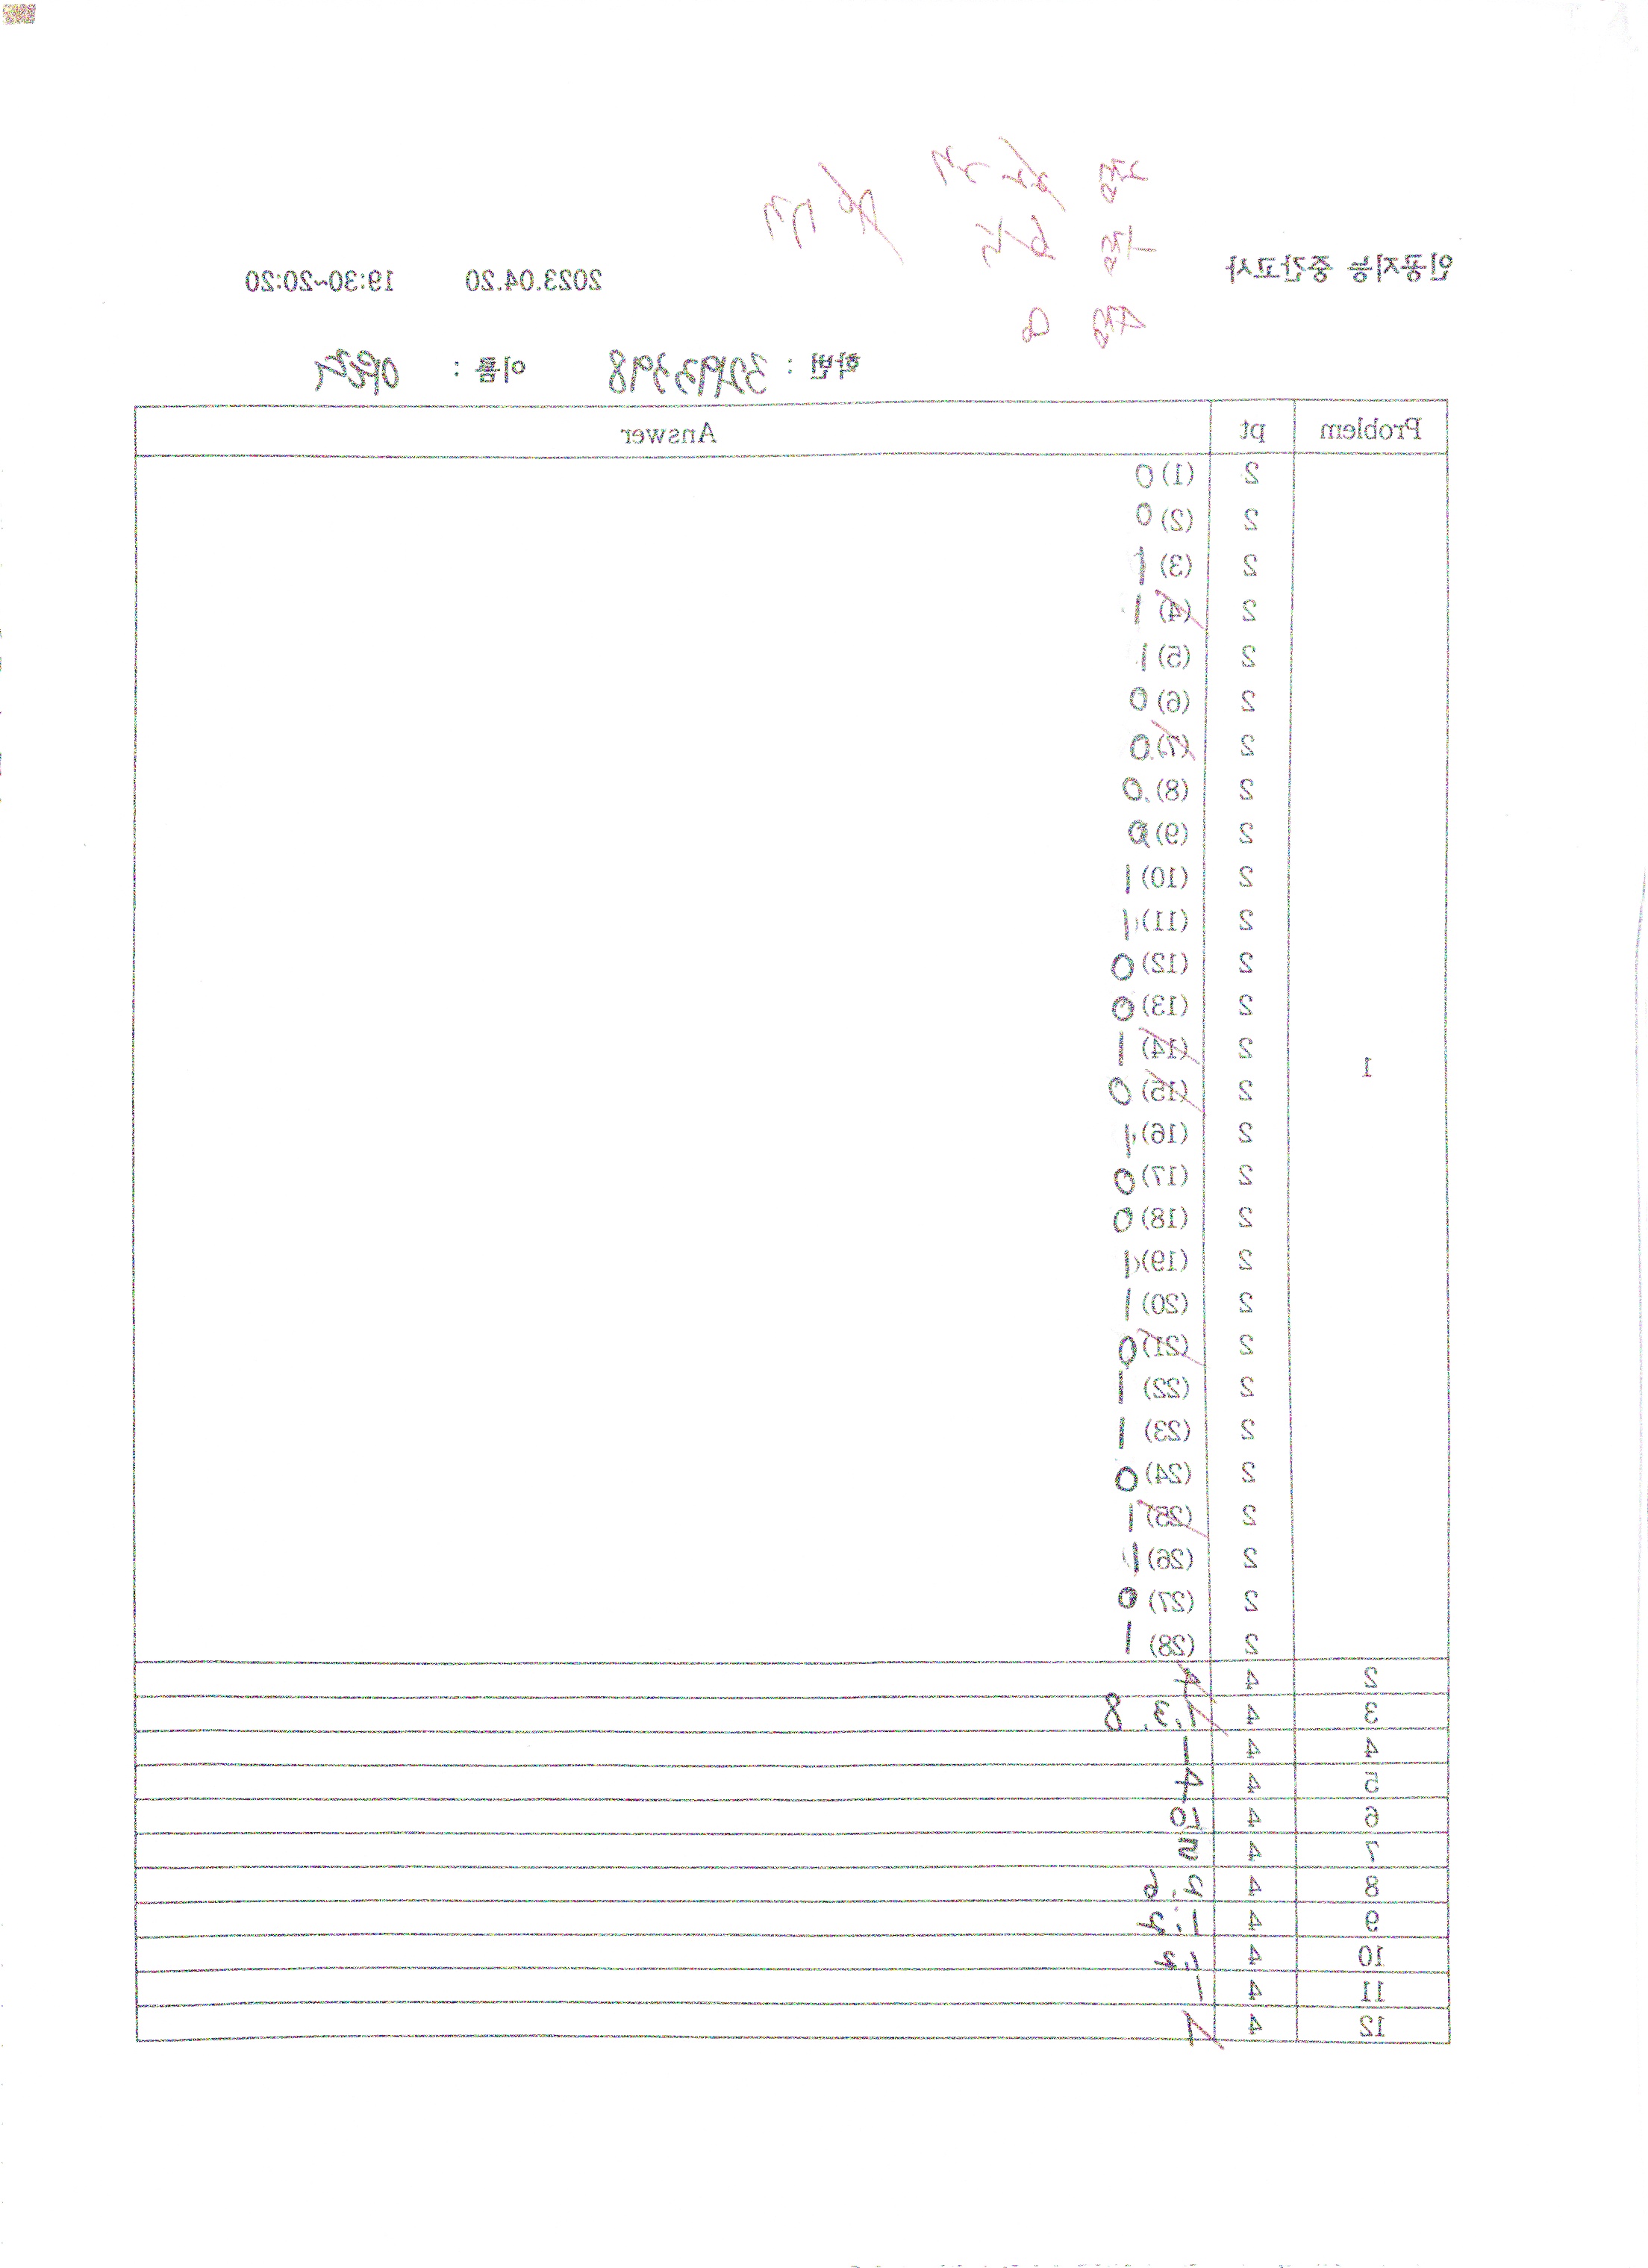 인공지능 중간고사 2023.04.20 19:30~20:20
학번 : 이름 :
Problem pt Answer
1
2 (1) 0
2 (2) 0
2 (3) 1
2 (4) 1
2 (5) 1
2 (6) 0
2 (7) 0
2 (8) 0
2 (9) 0
2 (10) 1
2 (11) 1
2 (12) 0
2 (13) 0
2 (14) 1
2 (15) 0
2 (16) 1
2 (17) 0
2 (18) 0
2 (19) 1
2 (20) 1
2 (21) 0
2 (22) 1
2 (23) 1
2 (24) 0
2 (25) 1
2 (26) 1
2 (27) 0
2 (28) 1
2 4 4
3 4 1,3, 8
4 4 1
5 4 4
6 4 10
7 4 5
8 4 2, 6
9 4 1,2
10 4 1,2
11 4 1
12 4 1